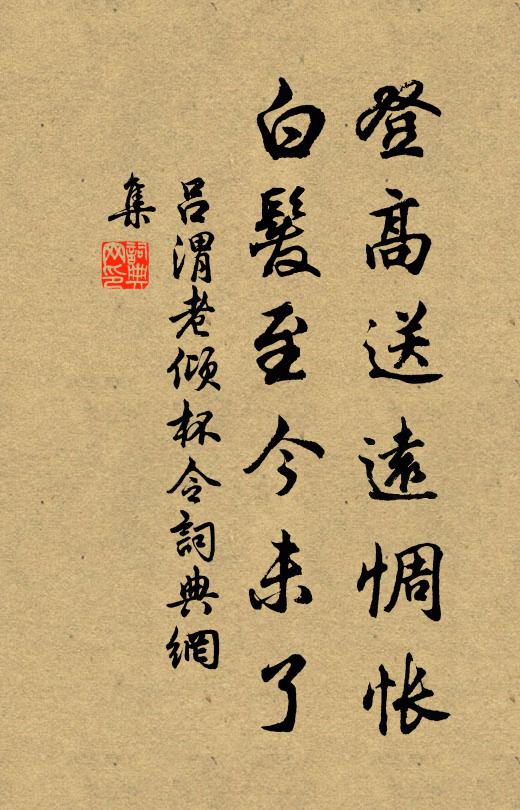 登高送遠惆悵
白髮至今未了
吕渭老傾杯令詞典網
集
詞典网印